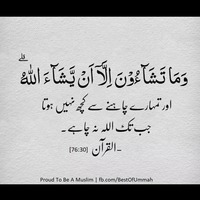 وَمَا تَشَآءُوْنَ اِلَّآ اَنْ يَّشَآءَ اللّٰهُ ۗ
اور تمہارے چاہنے سے کچھ نہیں ہوتا
جب تک اللہ نہ چاہے۔
-القرآن [76:30]
Proud To Be A Muslim | fb.com/BestOfUmmah